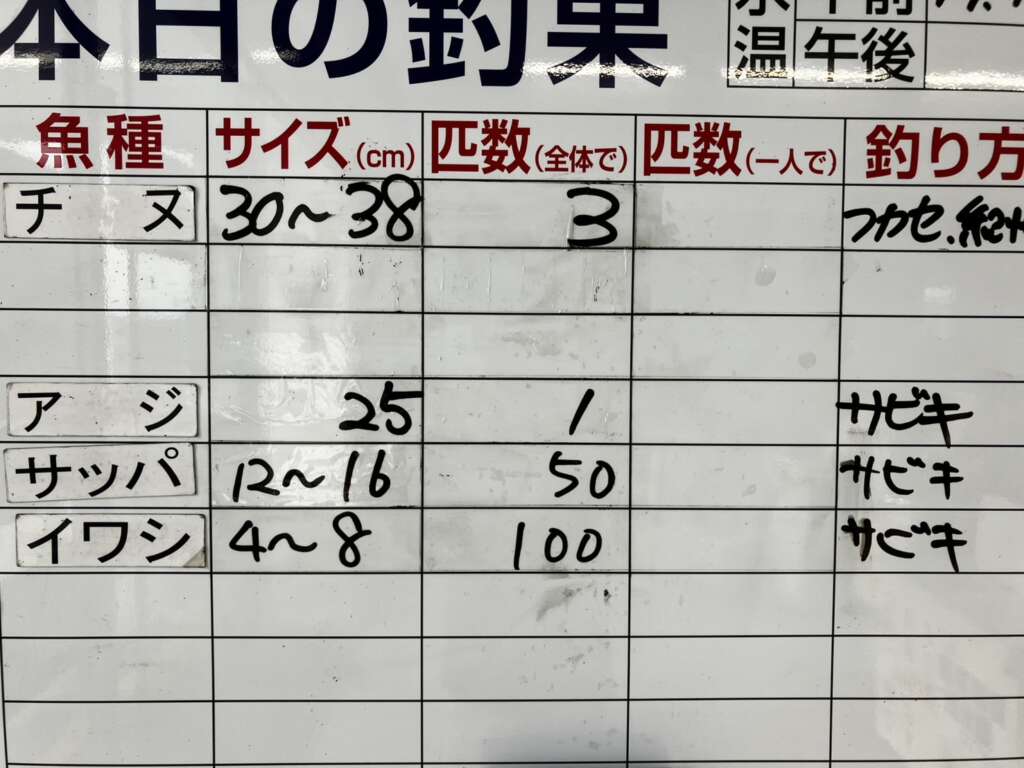 本日の釣果
温 午後
魚種 サイズ(cm) 匹数(全体で) 匹数(一人で) 釣り方
チヌ 30〜38 3 フカセ、
アジ 25 1 サビキ
サッパ 12〜16 50 サビキ
イワシ 4〜8 100 サビキ